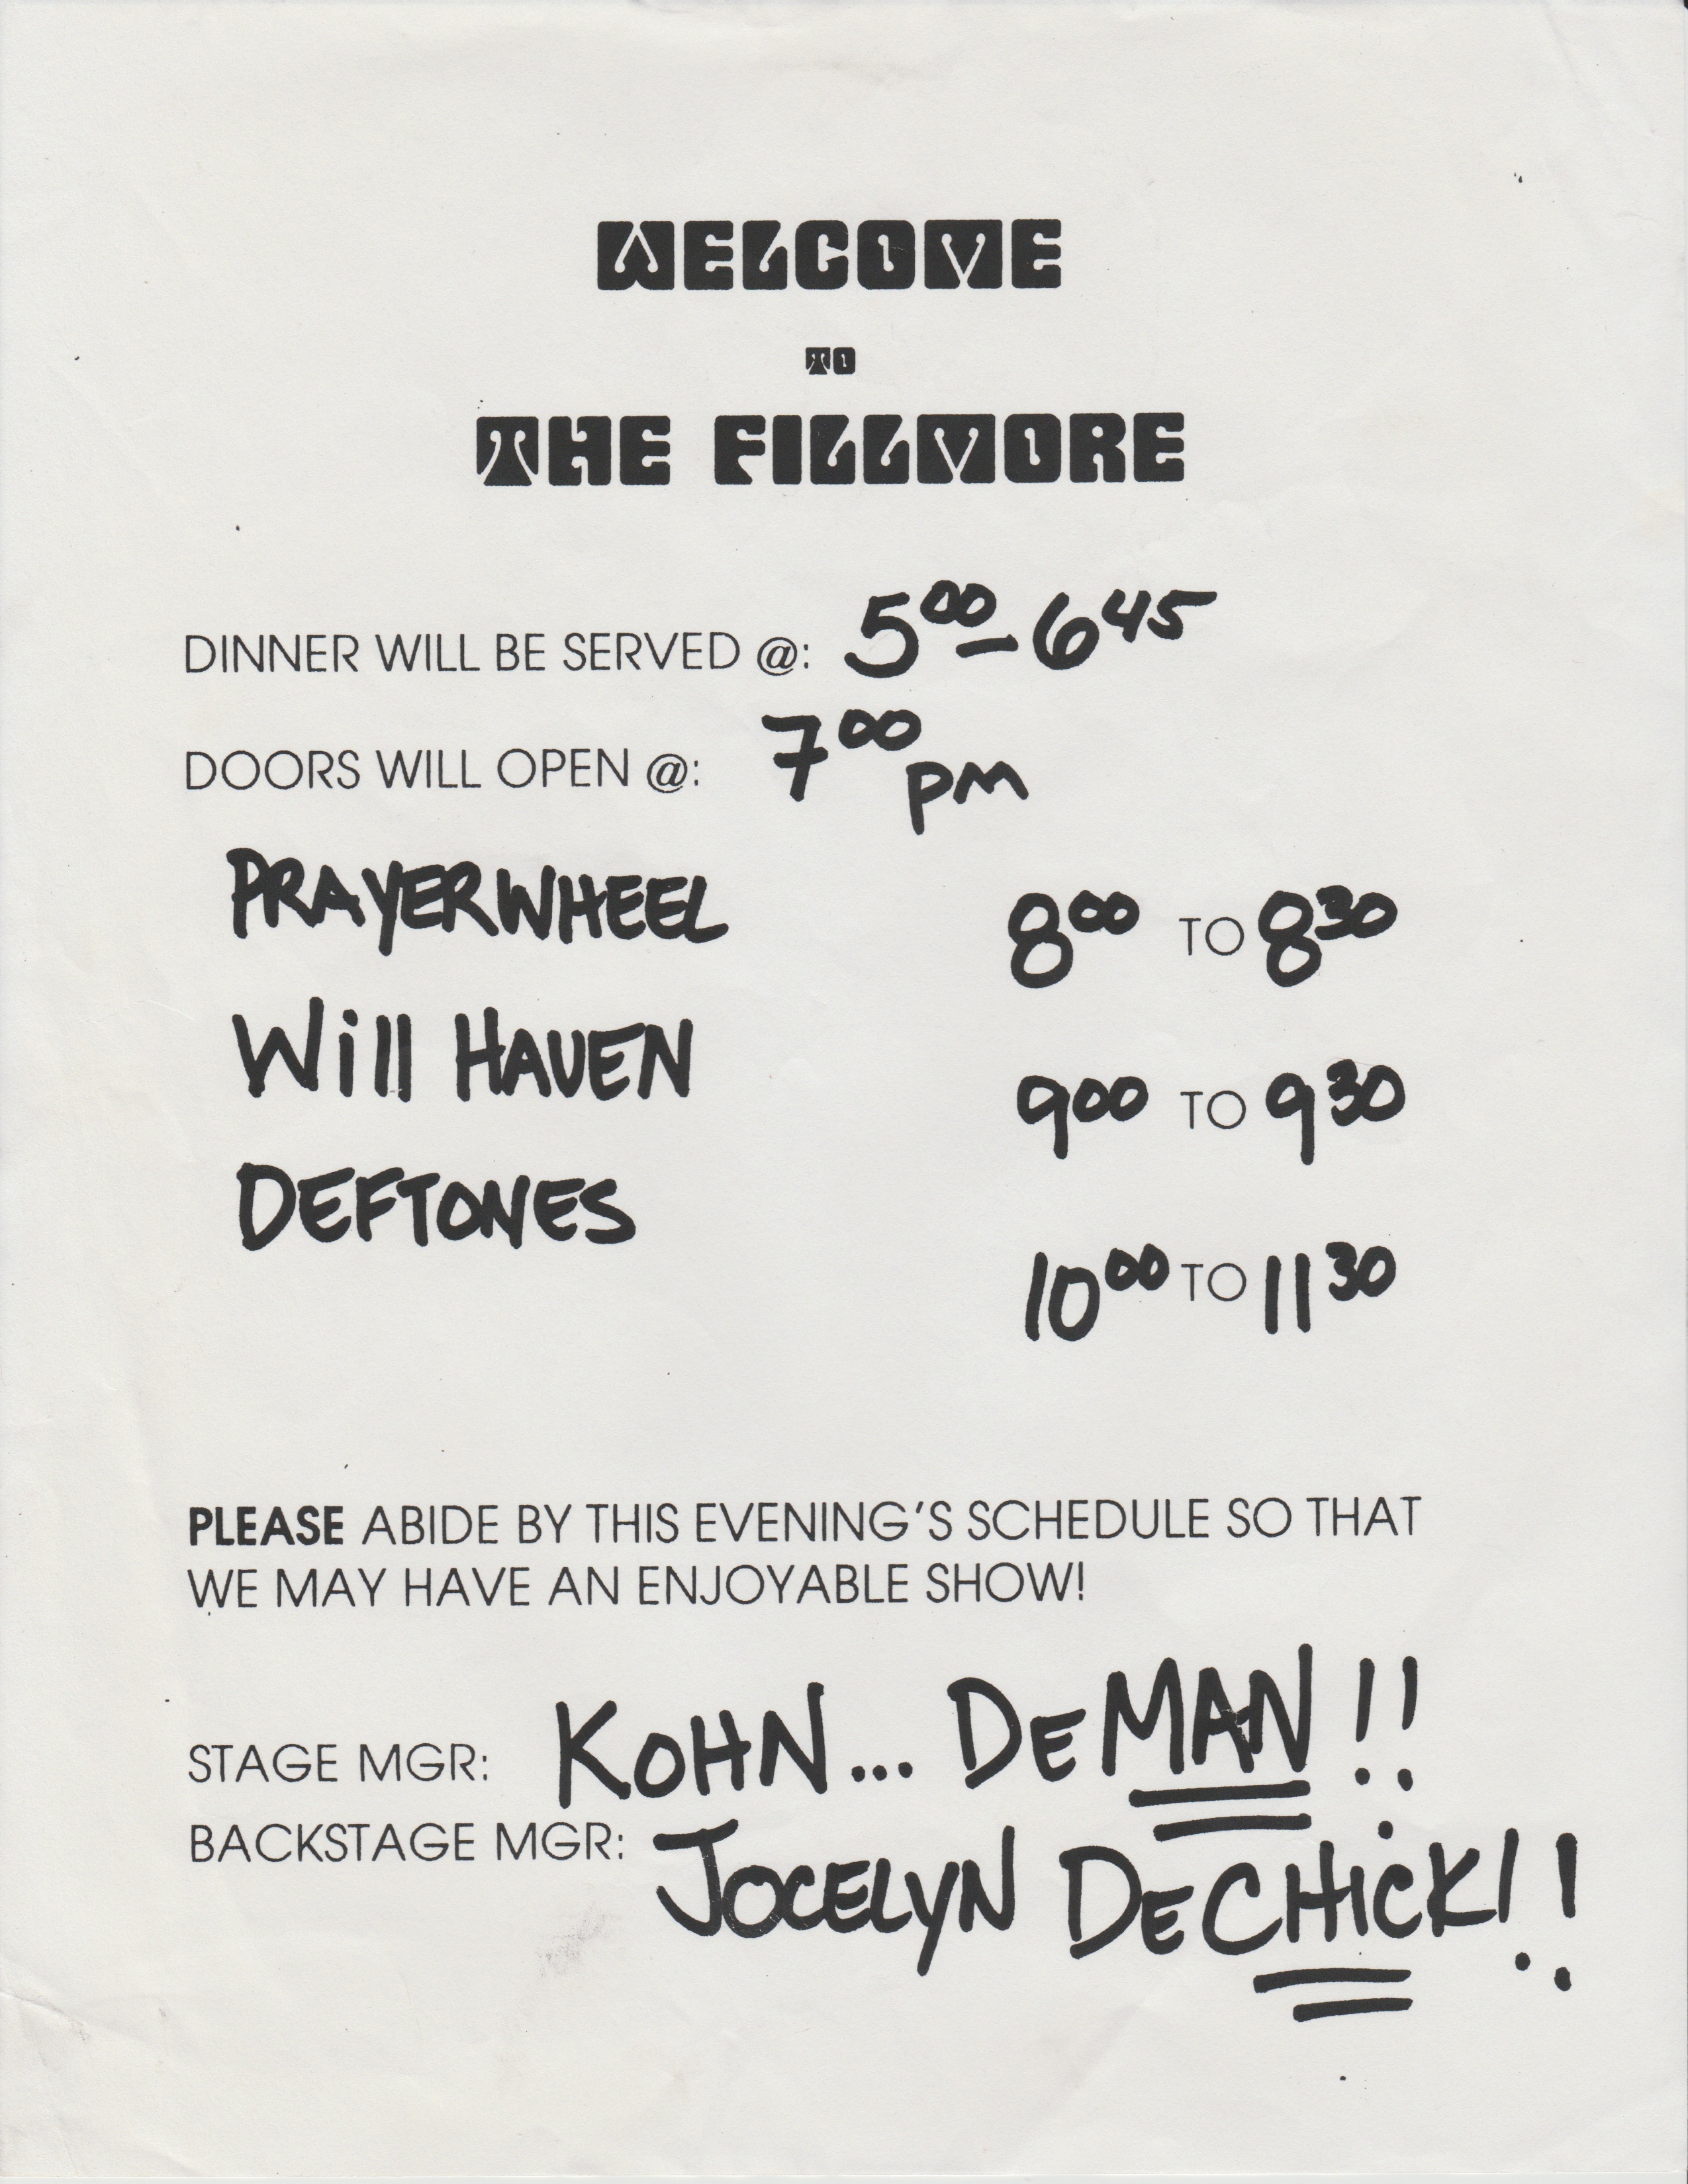 WELCOME
TO
THE FILLMORE
DINNER WILL BE SERVED @: 5⁰⁰ - 6⁴⁵
DOORS WILL OPEN @: 7⁰⁰ pm
PRAYERWHEEL 8⁰⁰ TO 8³⁰
Will HAVEN 9⁰⁰ TO 9³⁰
DEFTONES 10⁰⁰ TO 11³⁰
PLEASE ABIDE BY THIS EVENING'S SCHEDULE SO THAT
WE MAY HAVE AN ENJOYABLE SHOW!
STAGE MGR: KOHN... DEMAN!!
BACKSTAGE MGR: JOCELYN DECHICK!!